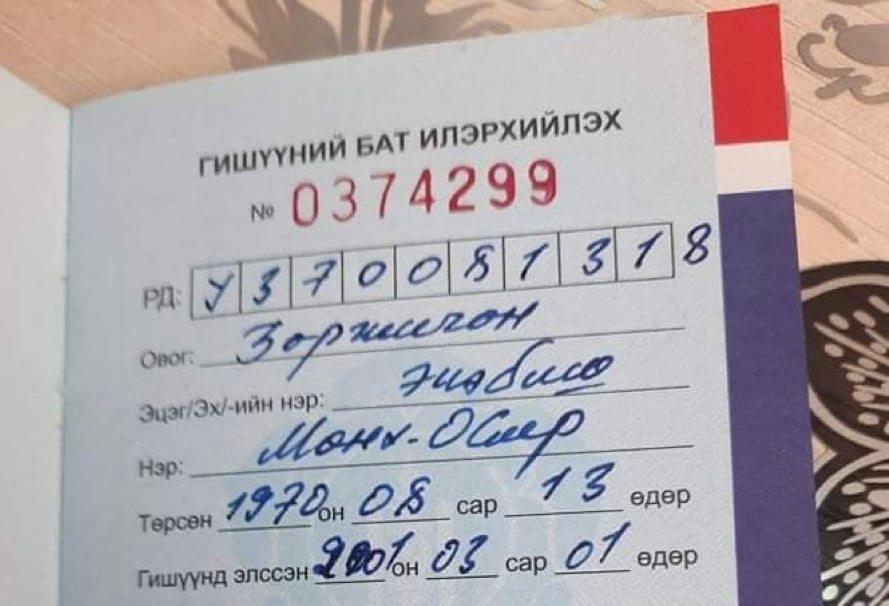 ГИШҮҮНИЙ БАТ ИЛЭРХИЙЛЭХ
№ 0374299
РД: УЗ70081318
Овог:
Эцэг/Эх/-ийн нэр: Энэбиш
Нэр: Мөнх-Очир
Төрсөн 1970 он 08 сар 13 өдөр
Гишүүнд элссэн 2001 он 03 сар 01 өдөр